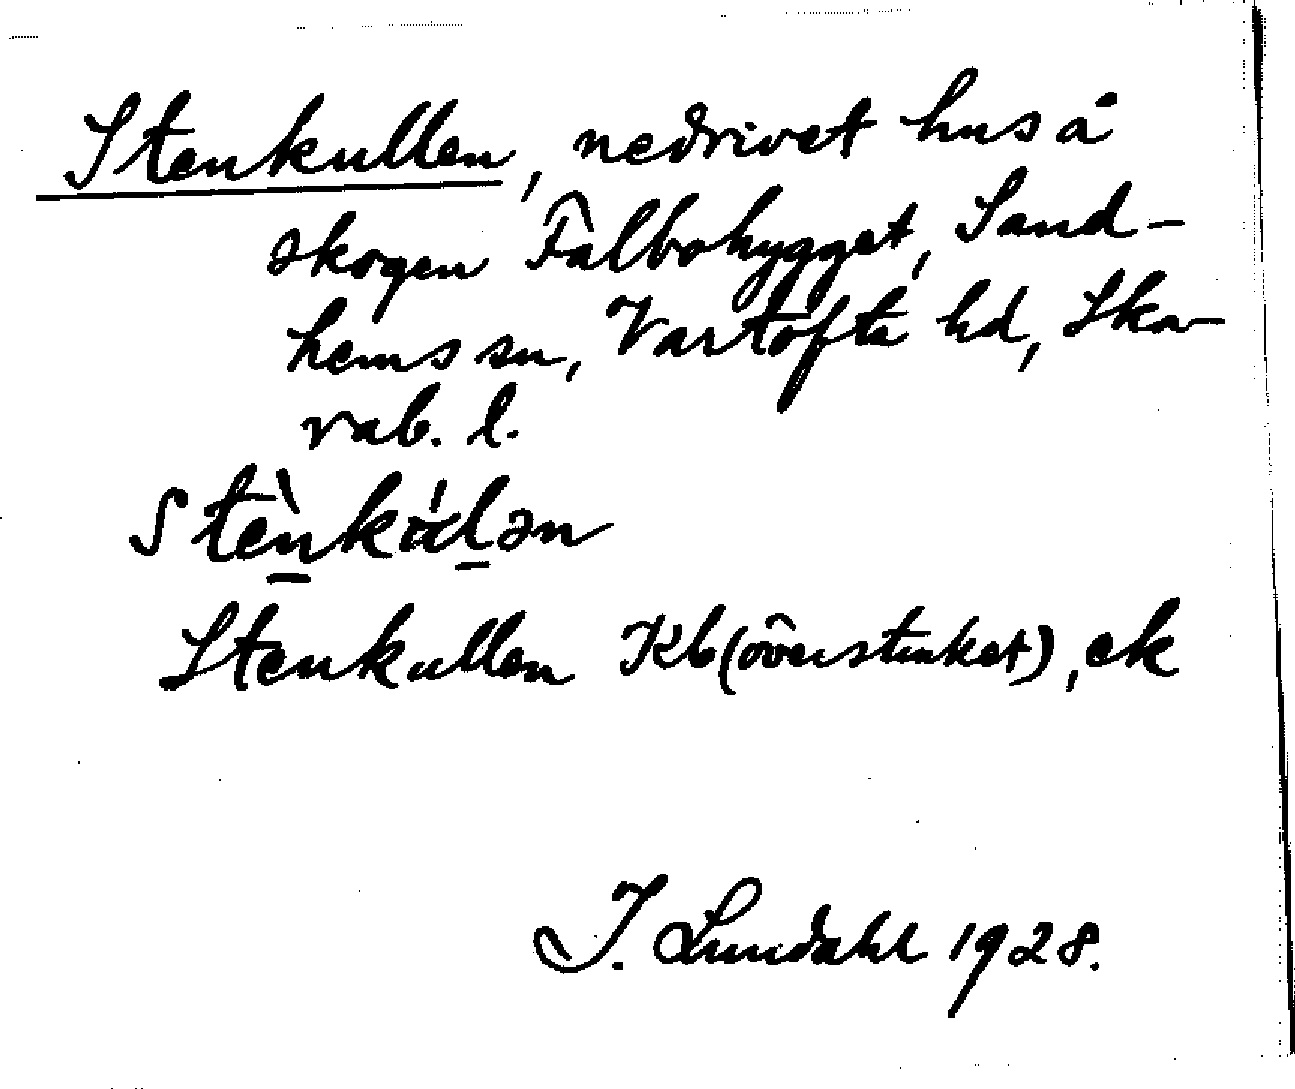 Stenkullen, nedrivet hus å
skogen Falbohygget, Sand-
hems sn, Vartofta hd, Ska-
rab. l.
Stenkullen Kb (överstruket), ek
I. Lundahl 1928.